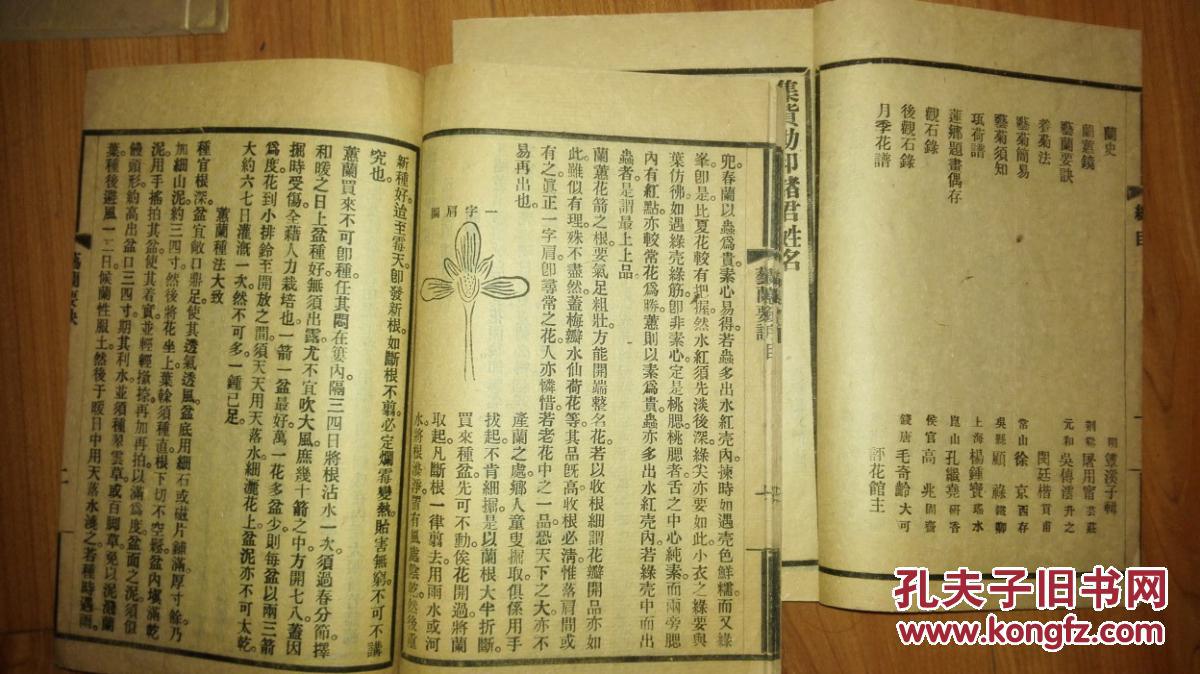 蘭史
蘭蕙鏡
藝蘭要訣
養菊法
藝菊簡易
藝菊須知
瓨荷譜
蓮鄉題畫偶存
觀石錄
後觀石錄
月季花譜
總目
元和吳傳澐升之
閔廷楷
常山徐京西存
吳縣顧祿鐵卿
上海楊鍾寶瑤水
崑山孔繼堯研香
侯官高兆固齋
錢唐毛奇齡大可
評花館主
集貲助印諸君姓名
兜春蘭以蟲爲貴素心易得若蟲多出水紅壳內揀時如遇壳色鮮糯而又綠
峯卽是比夏花較有把握然水紅須先淡後深綠尖亦要如此小衣之綠要與
葉仿彿如遇綠壳綠筋卽非素心定是桃腮桃腮者舌之中心純素而兩旁腮
內有紅點亦較常花爲勝蕙則以素爲貴蟲亦多出水紅壳內若綠壳中而出
蟲者是謂最上上品
蘭蕙花箭之根要氣足粗壯方能開端整名花若以收根細謂花瓣開品亦如
此雖似有理殊不盡然蓋梅瓣水仙荷花等其品旣高收根必清惟落肩間或
有之眞正一字肩卽尋常之花人亦憐惜若老花中之一品恐天下之大亦不
易再出也
一字肩圖
產蘭之處鄉人童叟掘取俱係用手
拔起不肯細掘是以蘭根大半折斷
買來種盆先可不動俟花開過將蘭
取起凡斷根一律剪去用雨水或河
水將根洗淨置有風處陰乾然後重
新種好迨至霉天卽發新根如斷根不剪必定爛霉變熱貽害無窮不可不講
究也
蕙蘭買來不可卽種任其悶在簍內隔三四日將根沾水一次須過春分節擇
和暖之日上盆種好無須出露尤不宜吹大風庶幾十箭之中方開七八蓋因
掘時受傷全藉人力栽培也一箭一盆最好萬一花多盆少則每盆以兩三箭
爲度花到小排鈴至開放之間須天天用天落水細灑花上盆泥亦不可太乾
大約六七日灌漑一次然不可多一鍾已足
蕙蘭種法大致
種官根深盆宜敞口鼎足使其透氣透風盆底用細石或磁片鋪滿厚寸餘乃
加細山泥約三四寸然後將花坐上葉榦須種直根下切不空鬆盆內塡滿乾
泥用手搖拍其盆使其着實並輕輕撳捺再加再拍以滿爲度盆面之泥須似
饅頭形約高出盆口三四寸期其利水並須種翠雲草或白脚草免以泥濺蘭
葉種後避風一二日候蘭性服土然後于暖日中用天落水澆之若種時遇雨
藝蘭要訣
二
孔夫子旧书网
www.kongfz.com